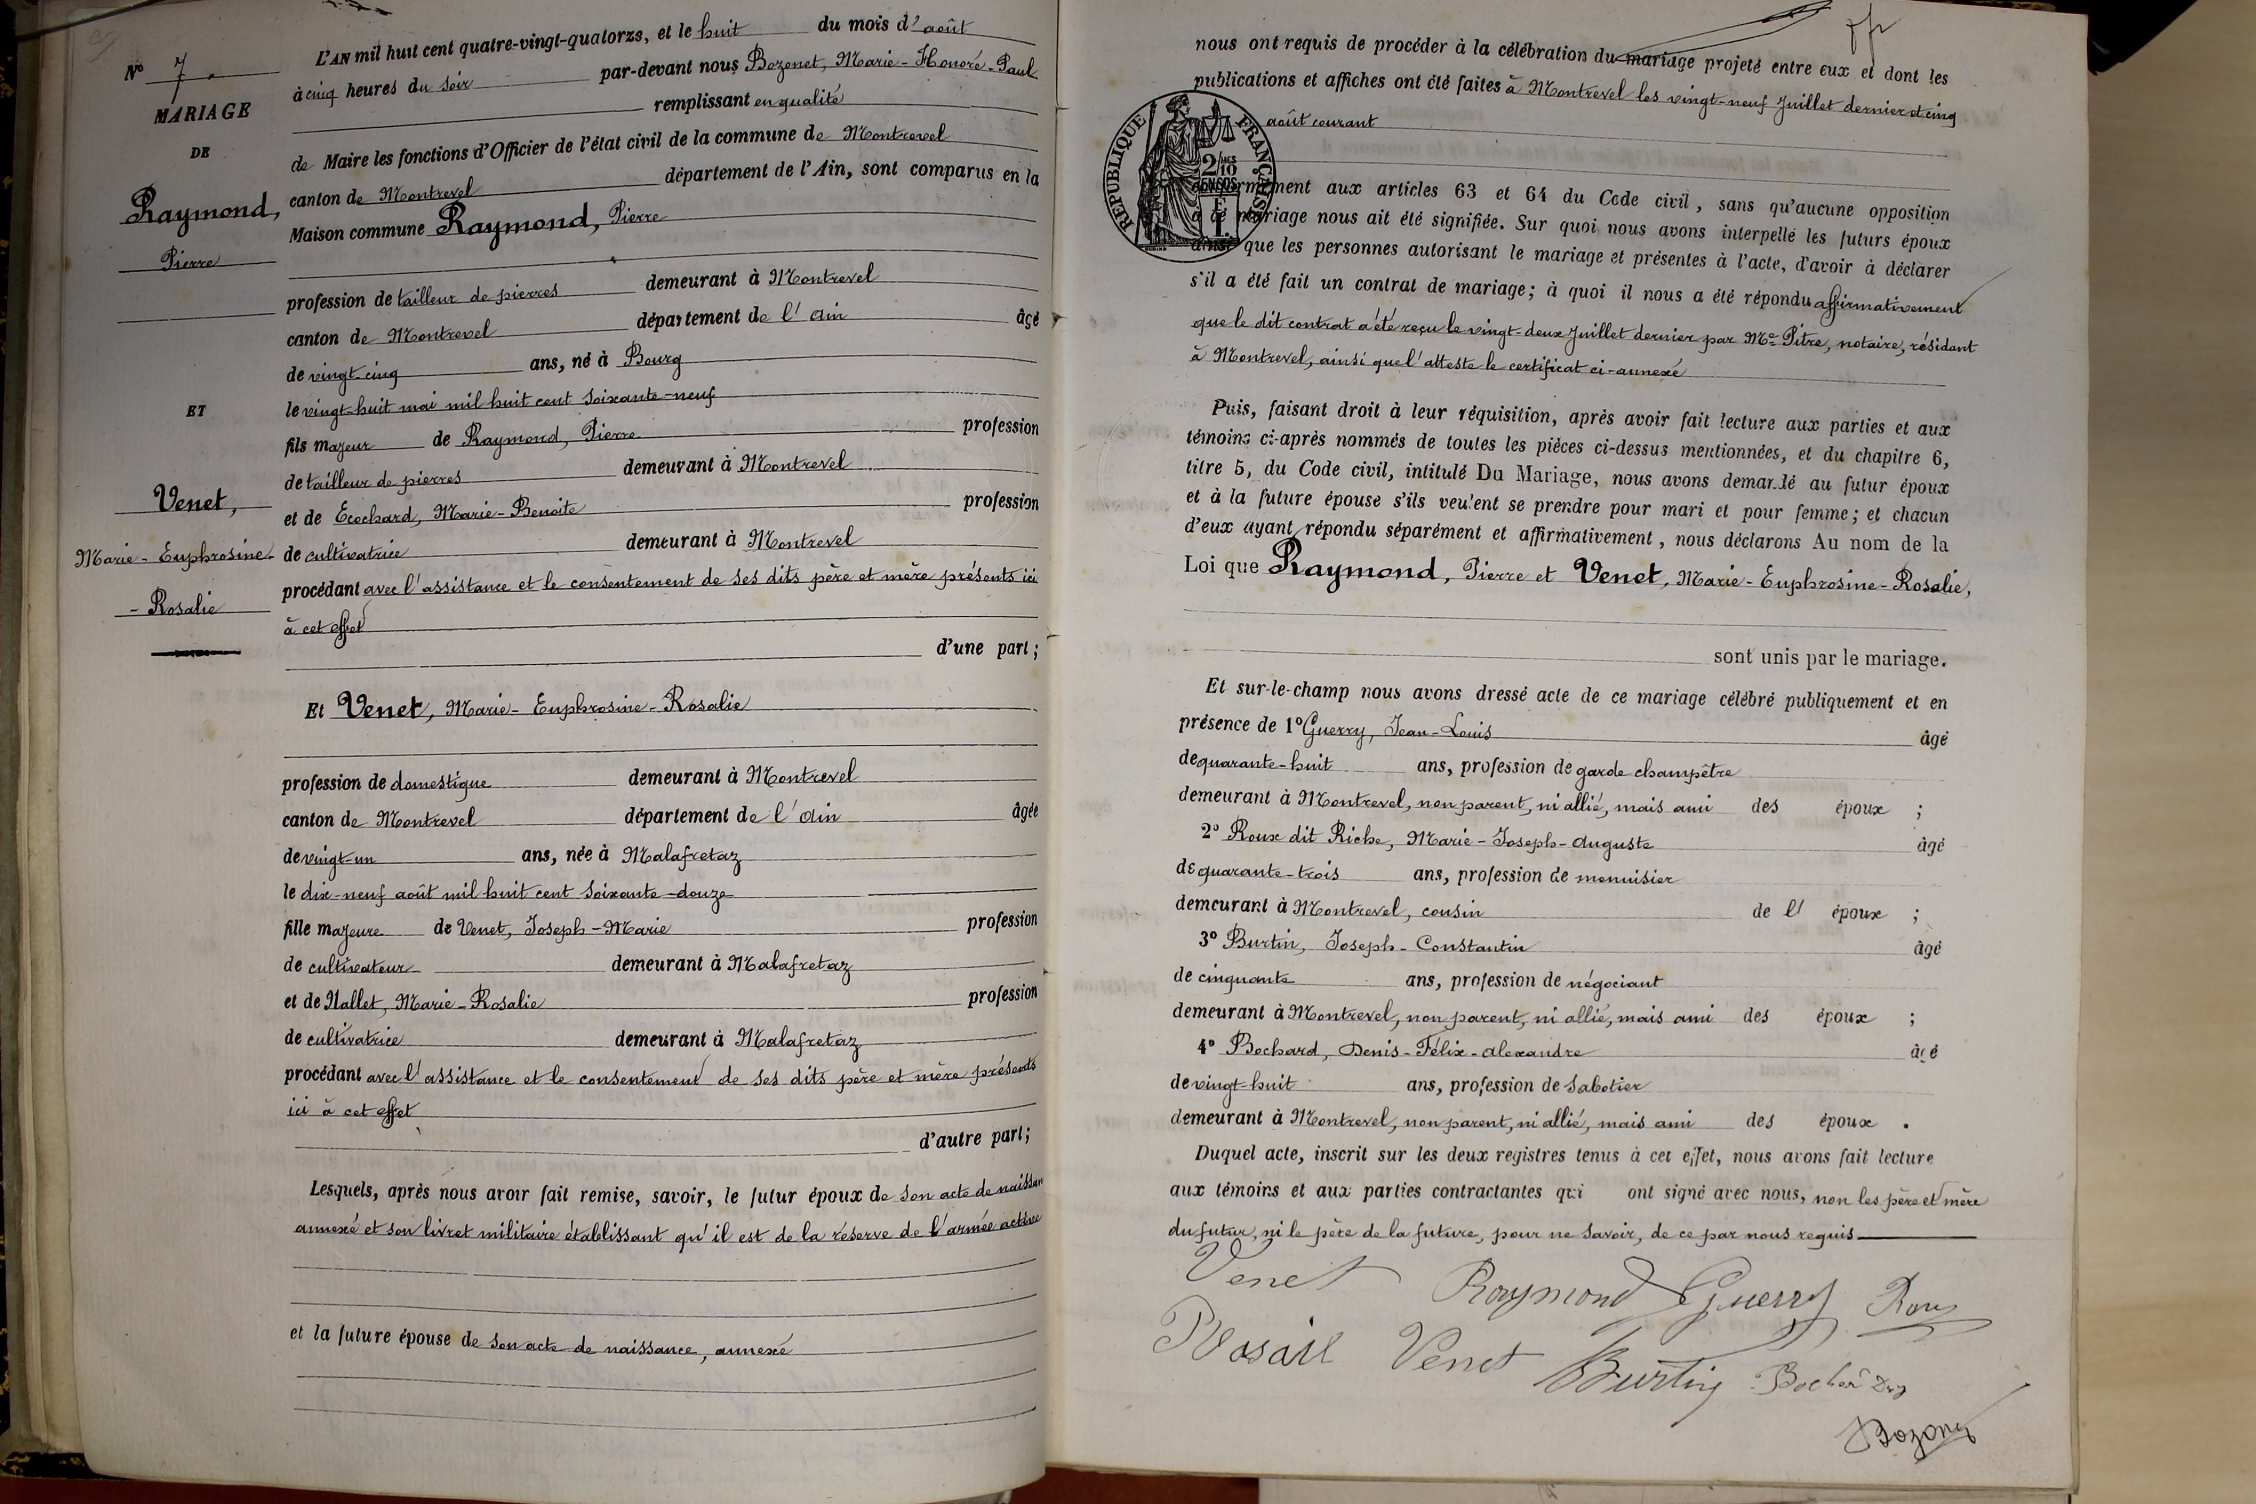 N° 7.
MARIAGE
DE
Raymond,
Pierre
ET
Venet,
Marie-Euphrosine-
-Rosalie
L'AN mil huit cent quatre-vingt-quatorze, et le huit du mois d'août
à cinq heures du soir par-devant nous Bozonet, Marie-Honoré-Paul
remplissant en qualité
de Maire les fonctions d'Officier de l'état civil de la commune de Montrevel
canton de Montrevel département de l'Ain, sont comparus en la
Maison commune Raymond, Pierre
profession de tailleur de pierres demeurant à Montrevel
canton de Montrevel département de l'Ain âgé
de vingt-cinq ans, né à Bourg
le vingt-huit mai mil huit cent soixante-neuf
fils majeur de Raymond, Pierre profession
de tailleur de pierres demeurant à Montrevel
et de Ecochard, Marie-Benoite profession
de cultivatrice demeurant à Montrevel
procédant avec l'assistance et le consentement de ses dits père et mère présents ici
à cet effet
d'une part;
Et Venet, Marie-Euphrosine-Rosalie
profession de domestique demeurant à Montrevel
canton de Montrevel département de l'Ain âgée
de vingt-un ans, née à Malafretaz
le dix-neuf août mil huit cent soixante-douze
fille majeure de Venet, Joseph-Marie profession
de cultivateur demeurant à Malafretaz
et de Nallet, Marie-Rosalie profession
de cultivatrice demeurant à Malafretaz
procédant avec l'assistance et le consentement de ses dits père et mère présents
ici à cet effet
d'autre part;
Lesquels, après nous avoir fait remise, savoir, le futur époux de son acte de naissan
annexé et son livret militaire établissant qu'il est de la réserve de l'armée active
et la future épouse de son acte de naissance, annexé
nous ont requis de procéder à la célébration du mariage projeté entre eux et dont les
publications et affiches ont été faites à Montrevel les vingt-neuf Juillet dernier et cinq
août courant
RÉPUBLIQUE FRANÇAISE
2/10 EN SUS
conformément aux articles 63 et 64 du Code civil, sans qu'aucune opposition
à ce mariage nous ait été signifiée. Sur quoi nous avons interpellé les futurs époux
ainsi que les personnes autorisant le mariage et présentes à l'acte, d'avoir à déclarer
s'il a été fait un contrat de mariage; à quoi il nous a été répondu affirmativement
que le dit contrat a été reçu le vingt-deux Juillet dernier par Me Pitre, notaire, résidant
à Montrevel, ainsi que l'atteste le certificat ci-annexé
Puis, faisant droit à leur réquisition, après avoir fait lecture aux parties et aux
témoins ci-après nommés de toutes les pièces ci-dessus mentionnées, et du chapitre 6,
titre 5, du Code civil, intitulé Du Mariage, nous avons demandé au futur époux
et à la future épouse s'ils veulent se prendre pour mari et pour femme; et chacun
d'eux ayant répondu séparément et affirmativement, nous déclarons Au nom de la
Loi que Raymond, Pierre et Venet, Marie-Euphrosine-Rosalie,
sont unis par le mariage.
Et sur-le-champ nous avons dressé acte de ce mariage célébré publiquement et en
présence de 1° Guerry, Jean-Louis âgé
de quarante-huit ans, profession de garde champêtre
demeurant à Montrevel, non parent, ni allié, mais ami des époux ;
2° Roux dit Riche, Marie-Joseph-Auguste âgé
de quarante-trois ans, profession de menuisier
demeurant à Montrevel, cousin de l' époux ;
3° Burtin, Joseph-Constantin âgé
de cinquante ans, profession de négociant
demeurant à Montrevel, non parent, ni allié, mais ami des époux ;
4° Bochard, Denis-Félix-Alexandre âgé
de vingt-huit ans, profession de sabotier
demeurant à Montrevel, non parent, ni allié, mais ami des époux .
Duquel acte, inscrit sur les deux registres tenus à cet effet, nous avons fait lecture
aux témoins et aux parties contractantes qui ont signé avec nous, non les père et mère
du futur, ni le père de la future, pour ne savoir, de ce par nous requis
Venet Raymond Guerry Roux
Venet Burtin